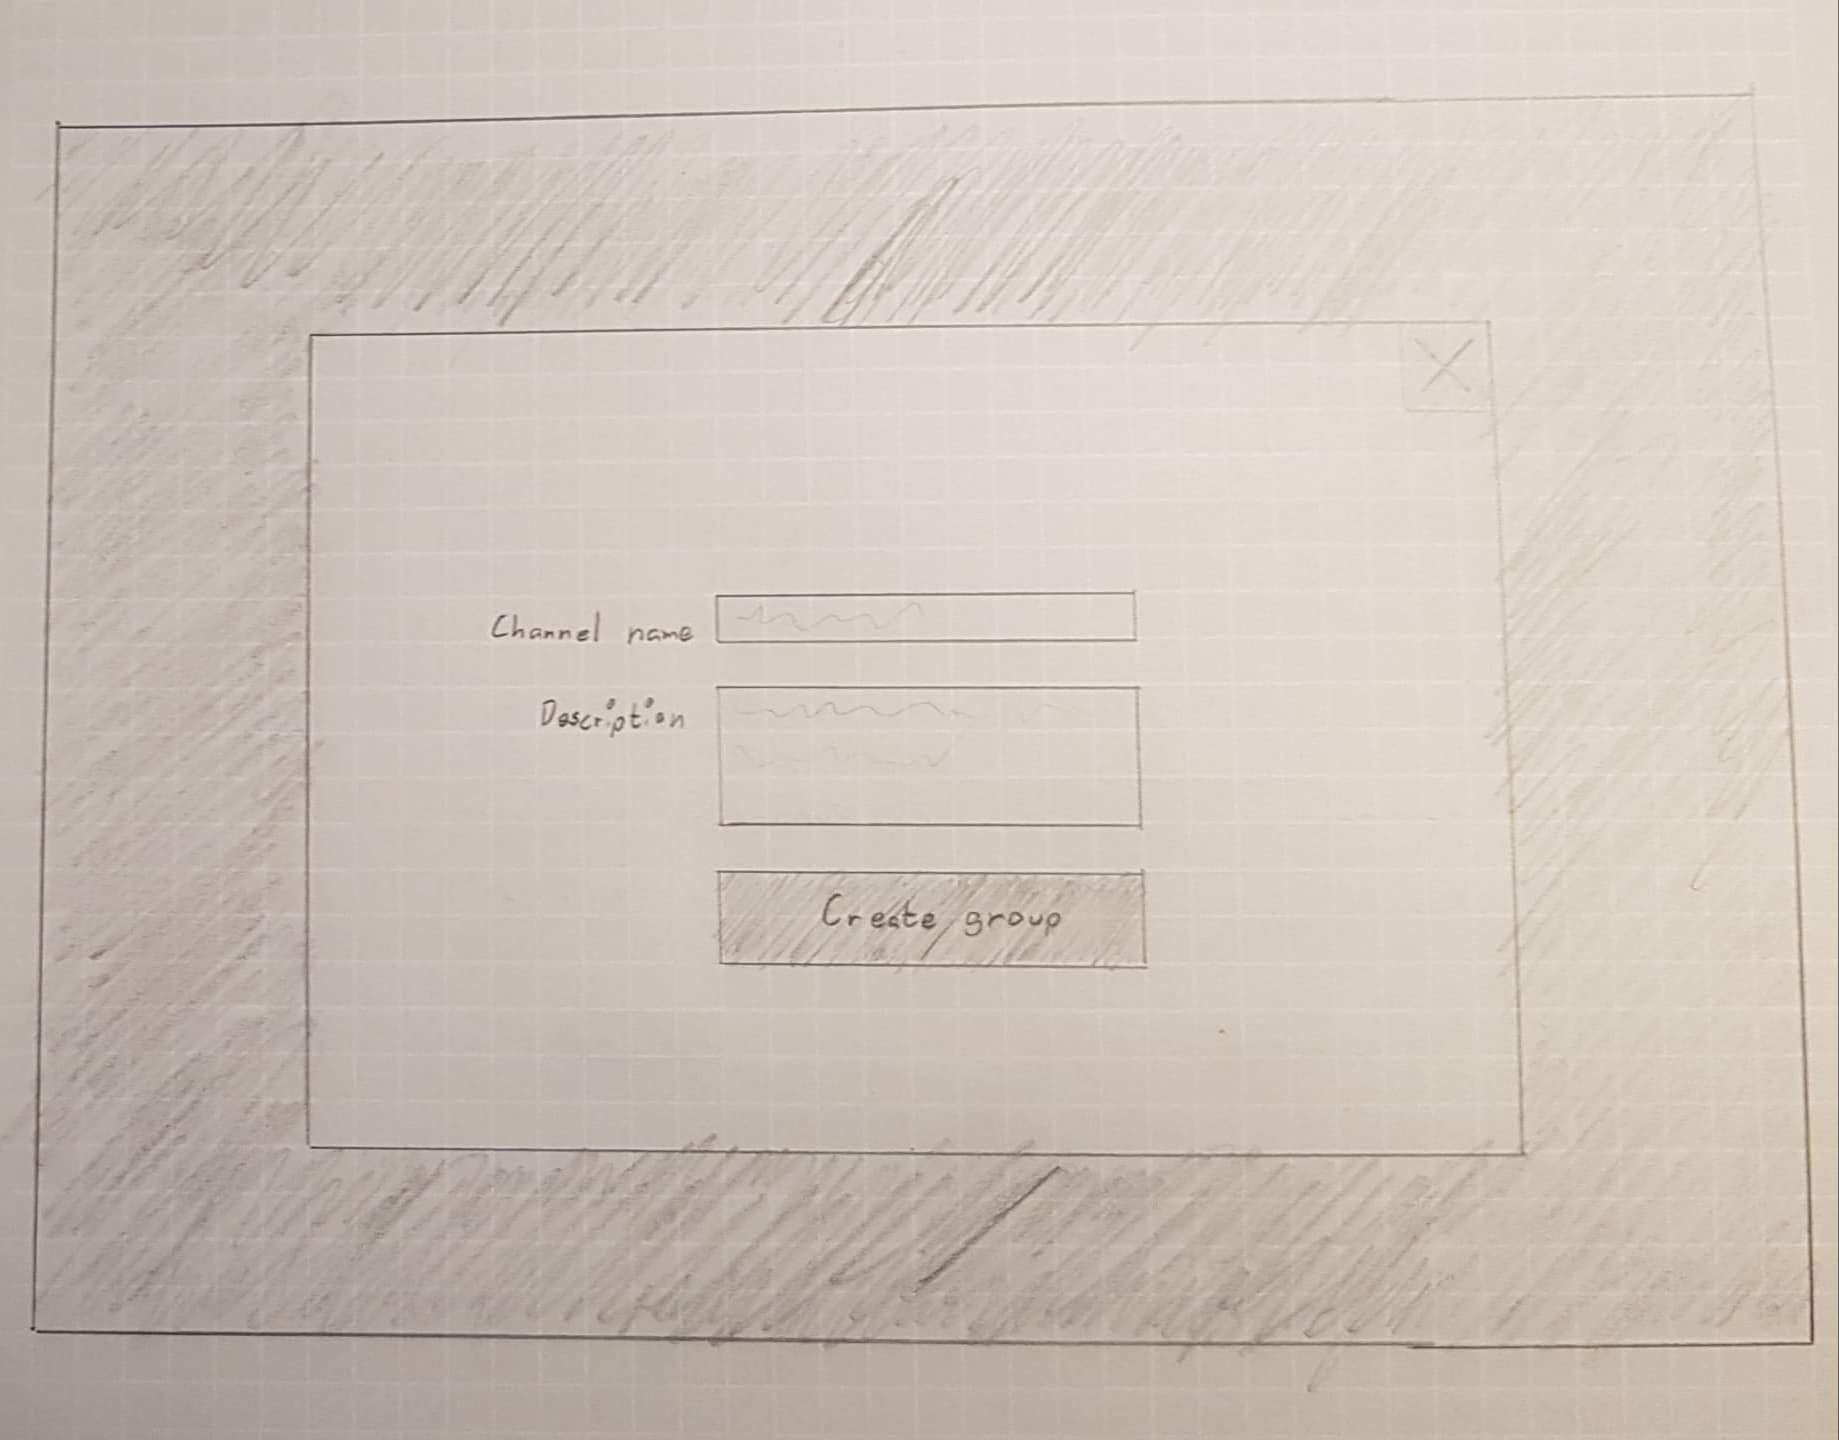 Channel name
Description
Create group